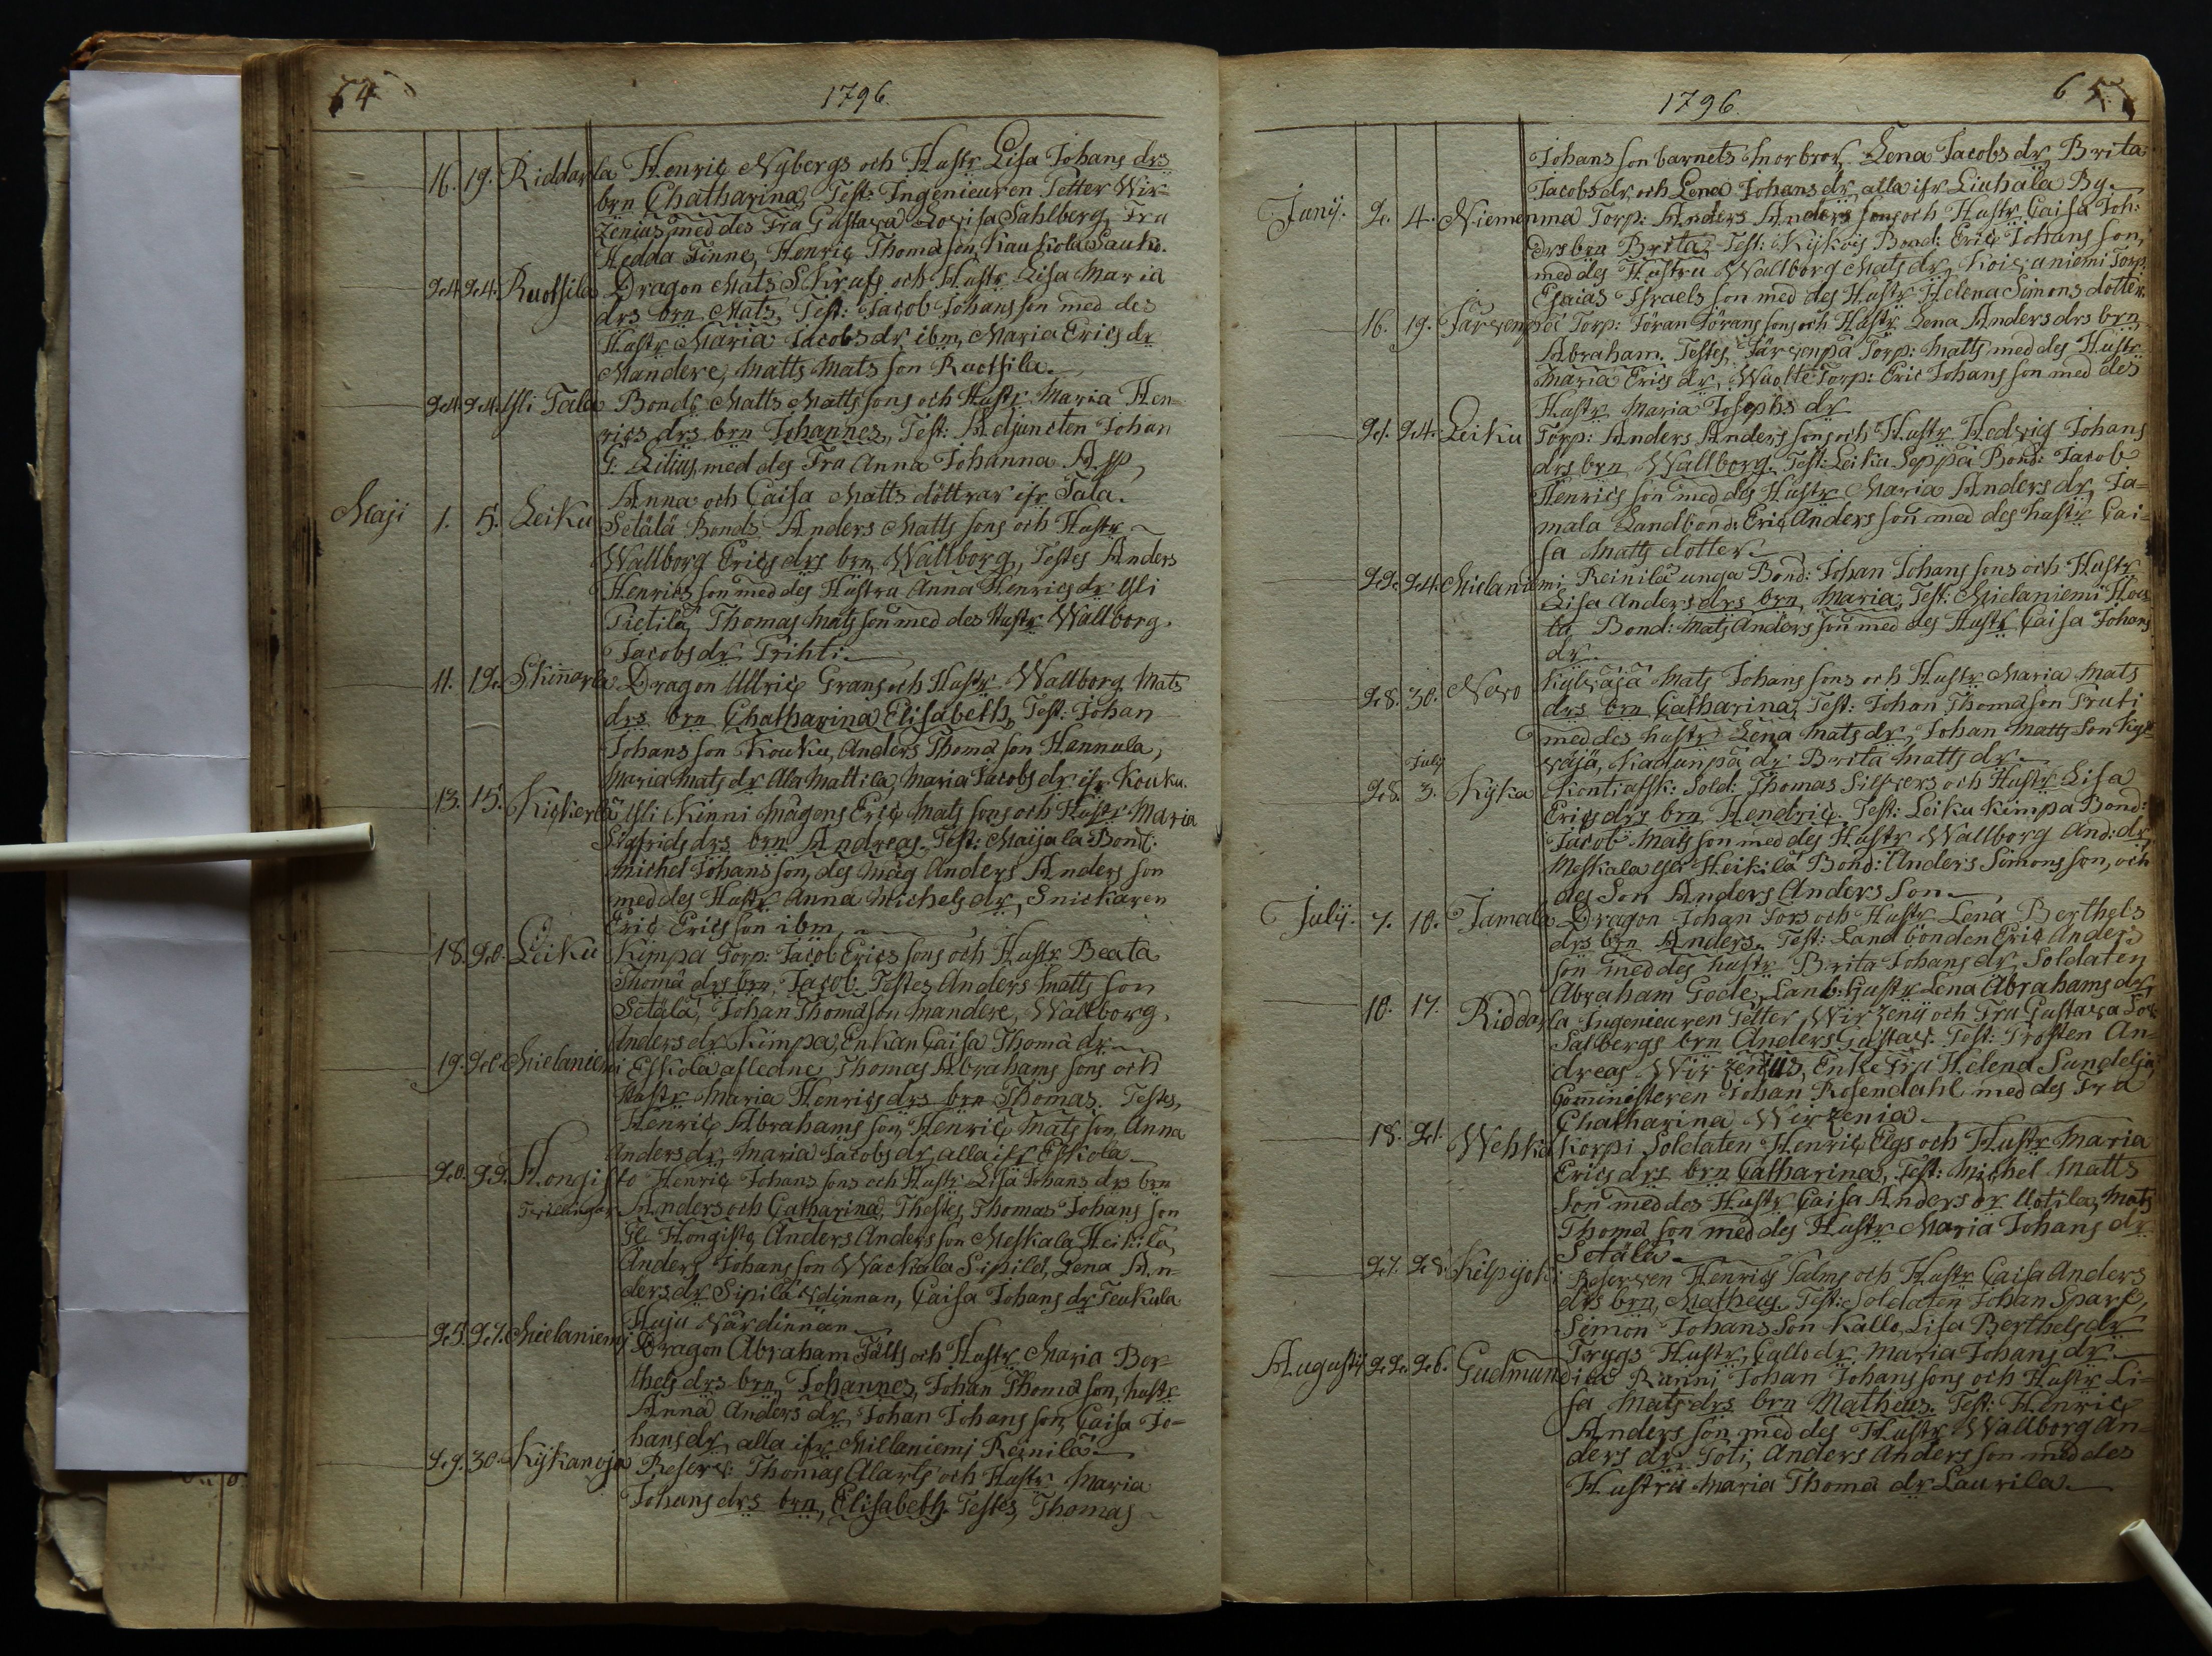 64
1796.
16. 19. Riddarla Henric Nybergs och Hustr Lisa Johans drs
brn Chatharina, Test: Ingenieuren Petter Wir-
zenius med des Fru Gustava Lovisa Sahlberg, Fru
Hedda Finne, Henric Thomason, Kaukola Lauko.
24. 24. Ruotsila Dragon Mats Skrufs och Hustr Lisa Maria
drs brn Mats, Test: Jacob Johansson med des
Hustr Maria Jacobs dr ibm, Maria Erics dr
Mandere, Matts Mats son Ruotsila.
24. 24. Yli Tala Bonds Matts Mattssons och Hustr Maria Hen-
rics drs brn Johannes, Test: Adjuncten Johan
G: Lilius med des Fru Anna Johanna Asp,
Anna och Caisa Matts döttrar ifr Tala.
Maji 1. 5. Leiku Setälä Bonds Anders Matts sons och Hustr
Wallborg Erics drs brn Wallborg, Testes Anders
Henrics son med des Hustru Anna Henrics dr Yli
Pietilä, Thomas Mats son med des Hustr Wallborg
Jacobs dr Prihti.
11. 12. Skinnarla Dragon Ullric Grans och Hustr Wallborg Mats
drs brn Chatharina Elisabeth, Test: Johan
Johans son Kouku, Anders Thomason Hannula,
Maria Mats dr Ala Mattila, Maria Jacobs dr ifr Kouku.
13. 15. Kickerlä Yli Kinni Mågens Eric Mats sons och Hustr Maria
Sigfrids drs brn Andreas. Test: Maijala Bond:
Michel Johans son, des Måg Anders Anders son
med des Hustr Anna Michels dr, Snickaren
Eric Erics son ibm.
18. 20. Leiku Kimpa Torp: Jacob Erics sons och Hustr Beata
Thoma drs brn, Jacob. Testes Anders Matts son
Setälä, Johan Thomason Mandere, Wallborg
Anders dr Kimpa, Enkan Caisa Thoma dr
19. 20. Mielaniemi Eskola afledne Thomas Abrahams sons och
Hustr Maria Henrics drs brn Thomas. Testes,
Henric Abrahams son, Henric Mats son, Anna
Anders dr, Maria Jacobs dr, alla ifr Eskola
20. 22. Hongisto Henric Johans sons och Hustr Lisa Johans drs brn
Tvillingar Anders och Catharina, Thestes, Thomas Johans son
Hongisto, Anders Anders son Meskala Heikilä,
Anders Johans son Wackala Sipilä, Lena An-
ders dr Sipilä värdinnan, Caisa Johans dr Teukula
Huju Värdinnan.
25. 27. Mielaniemi Dragon Abraham Fälts och Hustr Maria Ber-
thels drs brn, Johannes, Johan Thoma son, hustr
Anna Anders dr, Johan Johans son, Caisa Jo-
hans dr, alla ifr Mielaniemi Reinilä.
29. 30. Kijkanoja Reserv: Thomas Alarts och Hustr Maria
Johans drs brn, Elisabeth Testes, Thomas
65
1796.
Johans son barnets Morbror, Lena Jacobs dr, Brita
Jacobs dr, och Lena Johans dr, alla ifr Liuhala By.
Junij. 2. 4. Niemenmaa Torp: Anders Anders sons och Hustr Caisa Joh:
drs brn Brita, Test: Kijkois Bond: Eric Johans son,
med des Hustru Wallborg Mats dr, Koivuniemi Torp:
Esaias Israels son med des Hustr Helena Simons dotter.
16. 19. Järvenpä Torp: Jöran Jörans sons och Hustr Lena Anders drs brn
Abraham. Testes, Järvenpä Torp: Matts med des Hustr
Maria Erics dr, Wuolte Torp: Eric Johans son med des
Hustr Maria Josephs dr
21. 24. Leiku Torp: Anders Anders sons och Hustr Hedvig Johans
drs brn Wallborg. Test: Leiku Seppä Bond: Jacob
Henrics son med des Hustr Maria Anders dr, Ja-
mala Landbond: Eric Anders son med des hustr Cai-
sa Matts dotter.
22. 24. Mielaniemi Reinilä unga Bond: Johan Johans sons och Hustr
Lisa Anders drs brn, Maria, Test: Mielaniemi
Bond: Mats Anders son med des Hustr Caisa Johans
dr.
28. 30. Novo Mats Johans sons och Hustr Maria Mats
drs brn Catharina, Test: Johan Thomason Pruti
med des hustr Lena Mats dr, Johan Matts son
Brita Matts dr.
28. July 3. Kijka Kontiafsk: Sold: Thomas Silfvers och Hustr Lisa
Erics drs brn Hendric. Test: Leiku Kimpa Bond:
Jacob Mats son med des Hustr Wallborg And: dr,
Meskala Heikilä Bond: Anders Simons son, och
des Son Anders Anders Son.
Julij. 7. 10. Jamala Dragon Johan Fors och Hustr Lena Berthels
drs brn Anders. Test: Landbonden Eric Anders
son med des hustr Brita Johans dr, Soldaten
Abraham Gode, Hustr Lena Abrahams dr
10. 17. Riddarla Ingenieuren Petter Wirzenij och Fru Gustava Lov:
Salbergs brn Anders Gustav. Test: Prosten An-
dreas Wirzenius, Enke Fru Helena Sundelia,
Comministeren Johan Rosendahl med des Fru
Chatharina Wirzenia
18. 21. Wehka Korpi Soldaten Henric Elgs och Hustr Maria
Erics drs brn Catharina, Test: Michel Matts
Son med des Hustr Caisa Anders dr Uotila, Mats
Thoma son med des Hustr Maria Johans dr
Setälä
27. 28. Kilpijoki Reserven Henrics Palms och Hustr Caisa Anders
drs brn, Matheus Test: Soldaten Johan Sparf,
Simon Johans Son Kallo, Lisa Berthels dr
Tryggs Hustr, Callo dr. Maria Johans dr.
Augustij 22. 26. Gudmundila Ranni Johan Johans sons och Hustr Li-
sa Mats drs brn Matheus. Test: Henric
Anders son med des Hustr Wallborg An-
ders dr Soti, Anders Anders son med des
Hustru Maria Thoma dr Laurila.